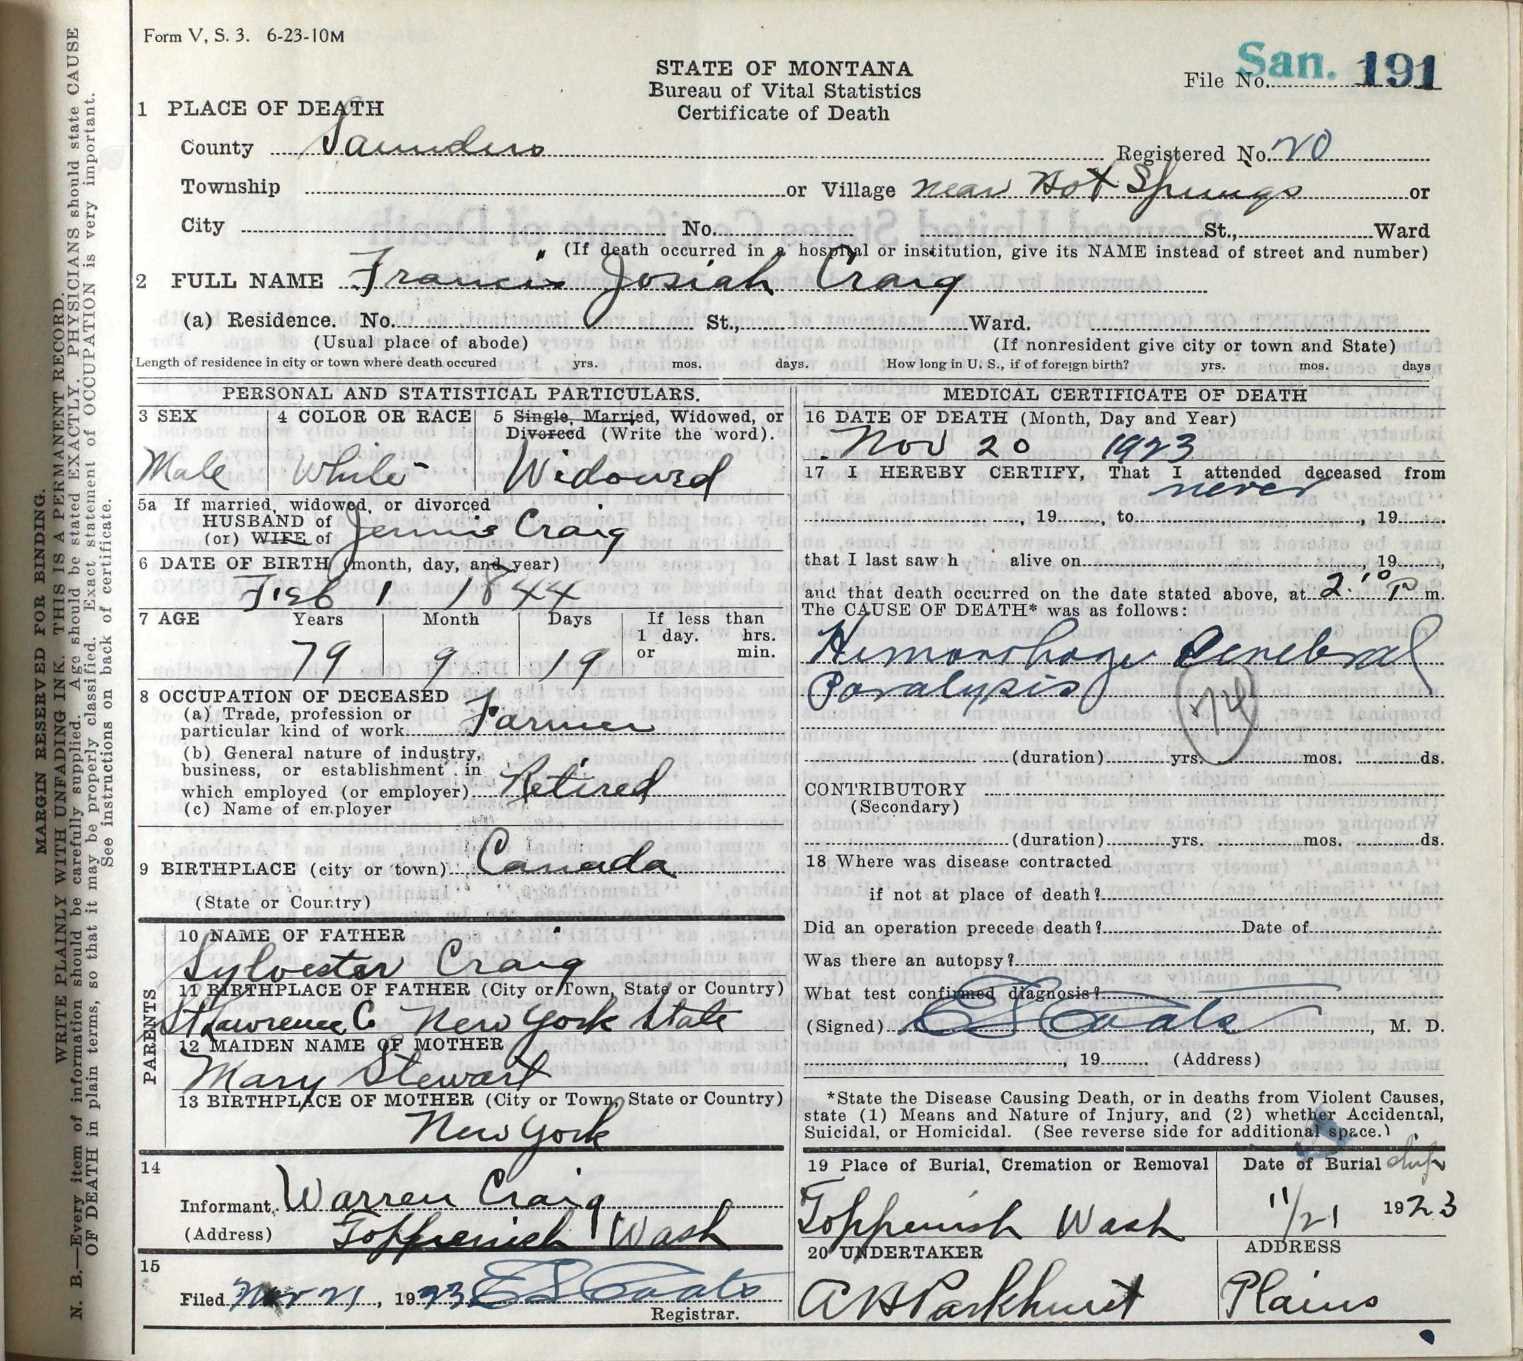 Form V. S. 3. 6-23-10M
STATE OF MONTANA
Bureau of Vital Statistics
Certificate of Death
File No. San. 191
1 PLACE OF DEATH
County Saunders Registered No. 20
Township or Village near Hot Springs or
City No. St., Ward
(If death occurred in a hospital or institution, give its NAME instead of street and number)
2 FULL NAME Francis Josiah Craig
(a) Residence. No. St., Ward.
(Usual place of abode) (If nonresident give city or town and State)
Length of residence in city or town where death occured yrs. mos. days. How long in U. S., if of foreign birth? yrs. mos. days
PERSONAL AND STATISTICAL PARTICULARS.
3 SEX 4 COLOR OR RACE 5 Single, Married, Widowed, or
Divorced (Write the word).
Male White Widowed
5a If married, widowed, or divorced
HUSBAND of
(or) WIFE of Jennie Craig
6 DATE OF BIRTH (month, day, and year)
Feb 1 1844
7 AGE Years Month Days If less than
1 day. hrs.
or min.
79 9 19
8 OCCUPATION OF DECEASED
(a) Trade, profession or
particular kind of work Farmer
(b) General nature of industry,
business, or establishment in
which employed (or employer) Retired
(c) Name of employer
9 BIRTHPLACE (city or town) Canada
(State or Country)
PARENTS
10 NAME OF FATHER
Sylvester Craig
11 BIRTHPLACE OF FATHER (City or Town, State or Country)
St Lawrence C New York State
12 MAIDEN NAME OF MOTHER
Mary Stewart
13 BIRTHPLACE OF MOTHER (City or Town, State or Country)
New York
14
Informant Warren Craig
(Address) Toppenish Wash
15
Filed Nov 21, 1923 E S Coats
Registrar.
MEDICAL CERTIFICATE OF DEATH
16 DATE OF DEATH (Month, Day and Year)
Nov 20 1923
17 I HEREBY CERTIFY, That I attended deceased from
never
, 19 , to , 19
that I last saw h alive on 19
and that death occurred on the date stated above, at 2:10 P m.
The CAUSE OF DEATH* was as follows:
Hemorrhage Cerebral
Paralysis
74
(duration) yrs. mos. ds.
CONTRIBUTORY
(Secondary)
(duration) yrs. mos. ds.
18 Where was disease contracted
if not at place of death?
Did an operation precede death? Date of
Was there an autopsy?
What test confirmed diagnosis?
(Signed) E S Coats, M. D.
, 19 (Address)
*State the Disease Causing Death, or in deaths from Violent Causes,
state (1) Means and Nature of Injury, and (2) whether Accidental,
Suicidal, or Homicidal. (See reverse side for additional space.)
19 Place of Burial, Cremation or Removal Date of Burial
Toppenish Wash 11/21 1923
20 UNDERTAKER ADDRESS
A H Parkhurst Plains
MARGIN RESERVED FOR BINDING.
WRITE PLAINLY WITH UNFADING INK. THIS IS A PERMANENT RECORD.
N. B.—Every item of information should be carefully supplied. Age should be stated EXACTLY. PHYSICIANS should state CAUSE
OF DEATH in plain terms, so that it may be properly classified. Exact statement of OCCUPATION is very important.
See instructions on back of certificate.